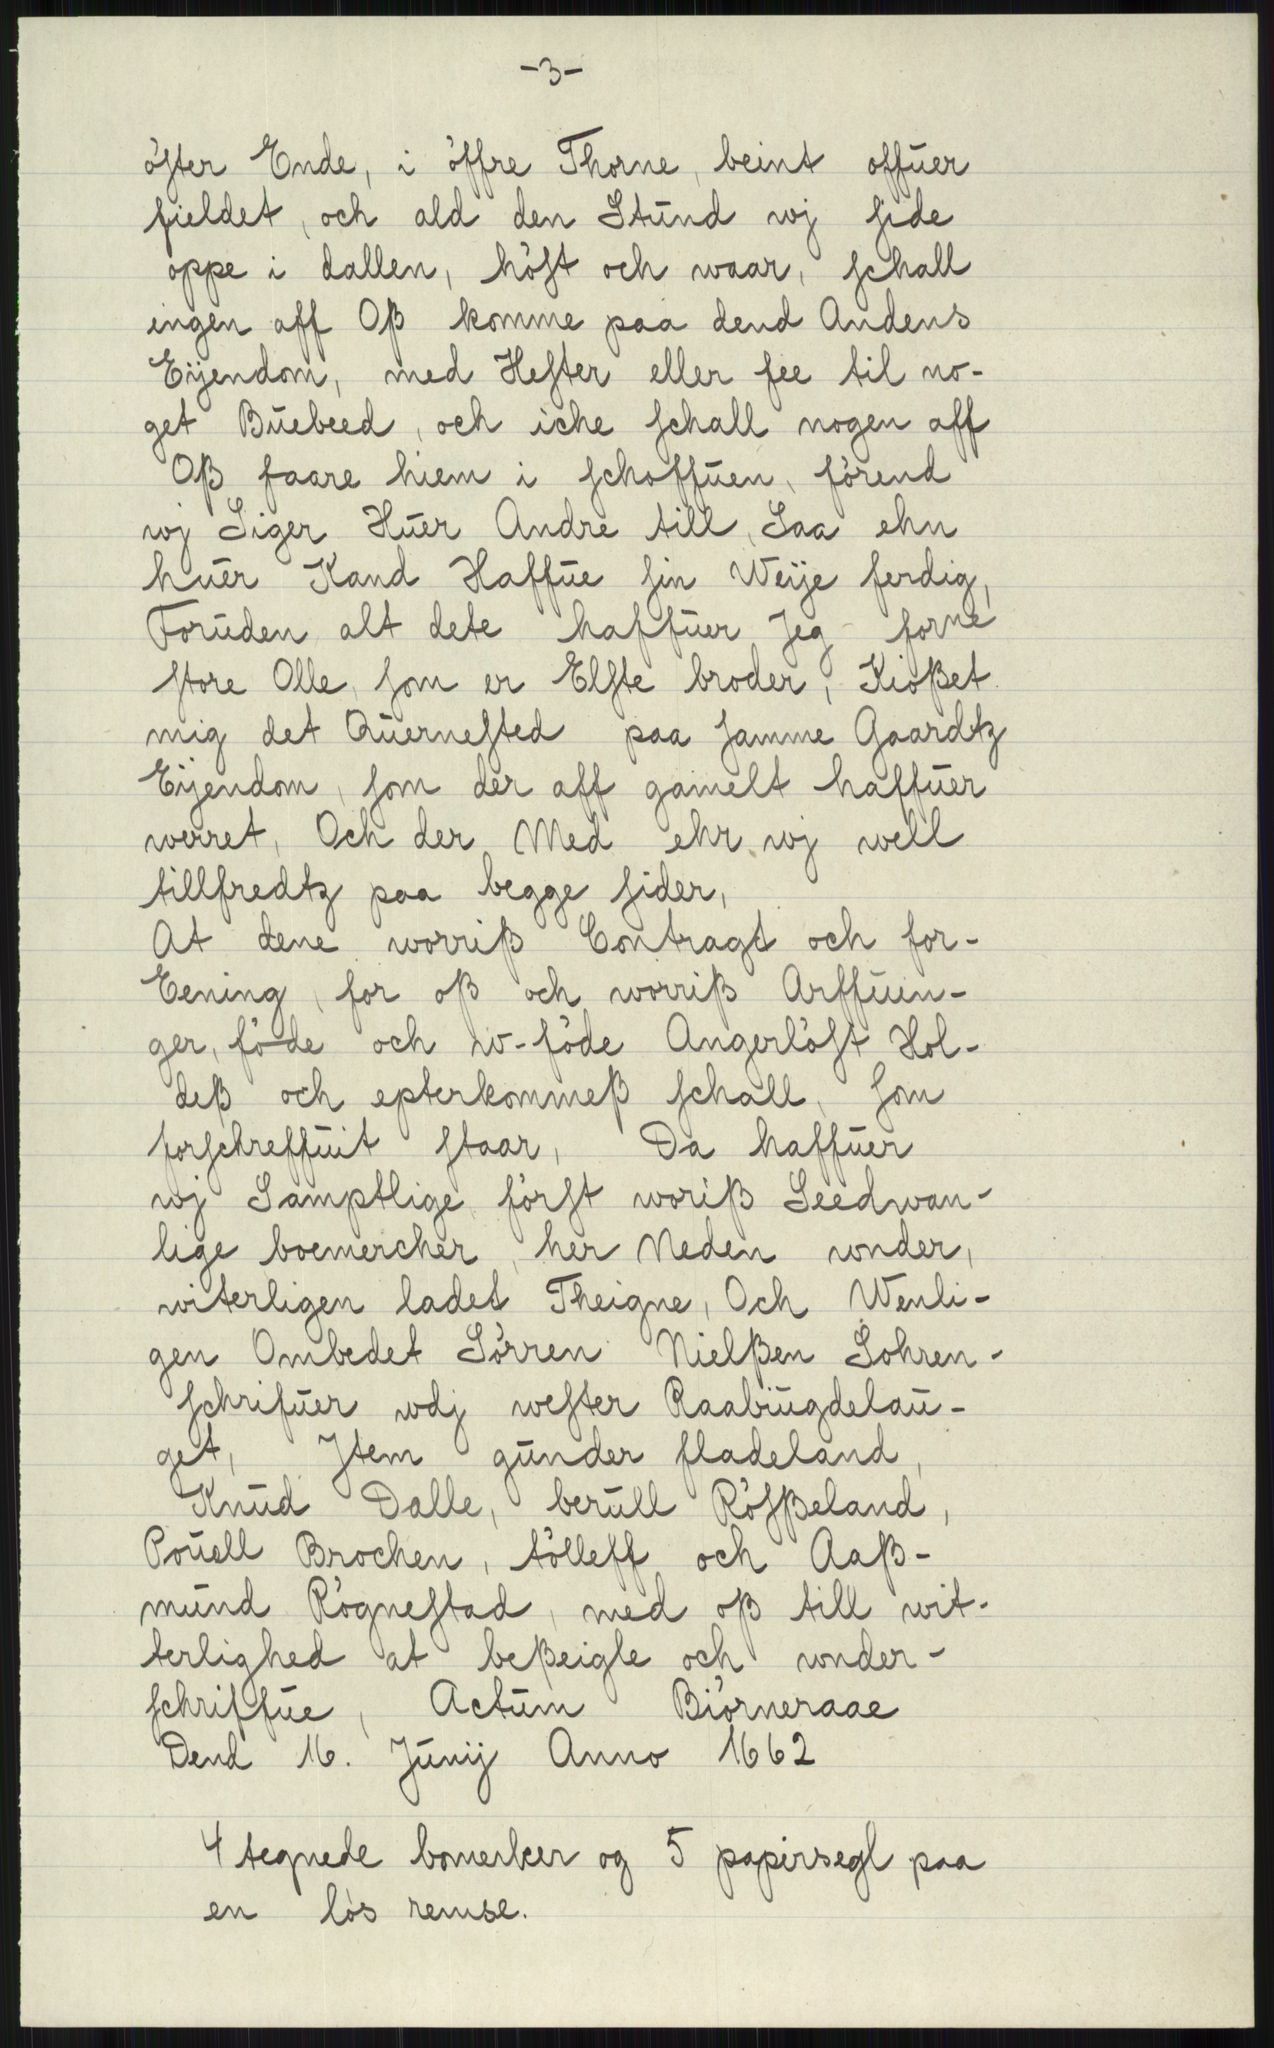 -3-
öster Ende, i öffre Thorne, beint offuer
fieldet, och ald den Stund wj side
oppe i dallen, höst och waar, schall
ingen aff Oß komme paa dend Andens
Eijendom, med Hester eller fee til no-
get Buebeed, och iche schall nogen aff
Oß faare hiem i schoffuen, förend
wj Siger Huer Andre till, Saa ehn
huer Kand Haffue sin Weije ferdig,
Foruden alt dete haffuer Jeg forne
store Olle, som er Elste broder, Kiößet
mig det Quernested paa samme Gaardtz
Eijendom, som der aff gamelt haffuer
werret, Och der Med ehr wj well
tillfredtz paa begge sider,
At dene worriß Contragt och for-
Eening, for oß och worriß Arffuin-
ger, föde och w-föde Angerlöst Hol-
deß och epterkommeß schall, som
forschreffuit staar, Da haffuer
wj Samptlige först woriß Seedwan-
lige boemercher, her Neden wnder,
witerligen ladet Theigne, Och Wenli-
gen Ombedet Sörren Nielßen Sohren-
schrifuer wdj wester Raabiugdelau-
get, Jtem gunder fladeland,
Knud Dalle, berull Rösßeland,
Pouell Brochen, tölleff och Aaß-
mund Rögnestad, med oß till wit-
terlighed at beßeigle och wnder-
schriffue, Actum Biörneraae
Dend 16. Junij Anno 1662
4 tegnede bomerker og 5 papirsegl paa
en lös remse.